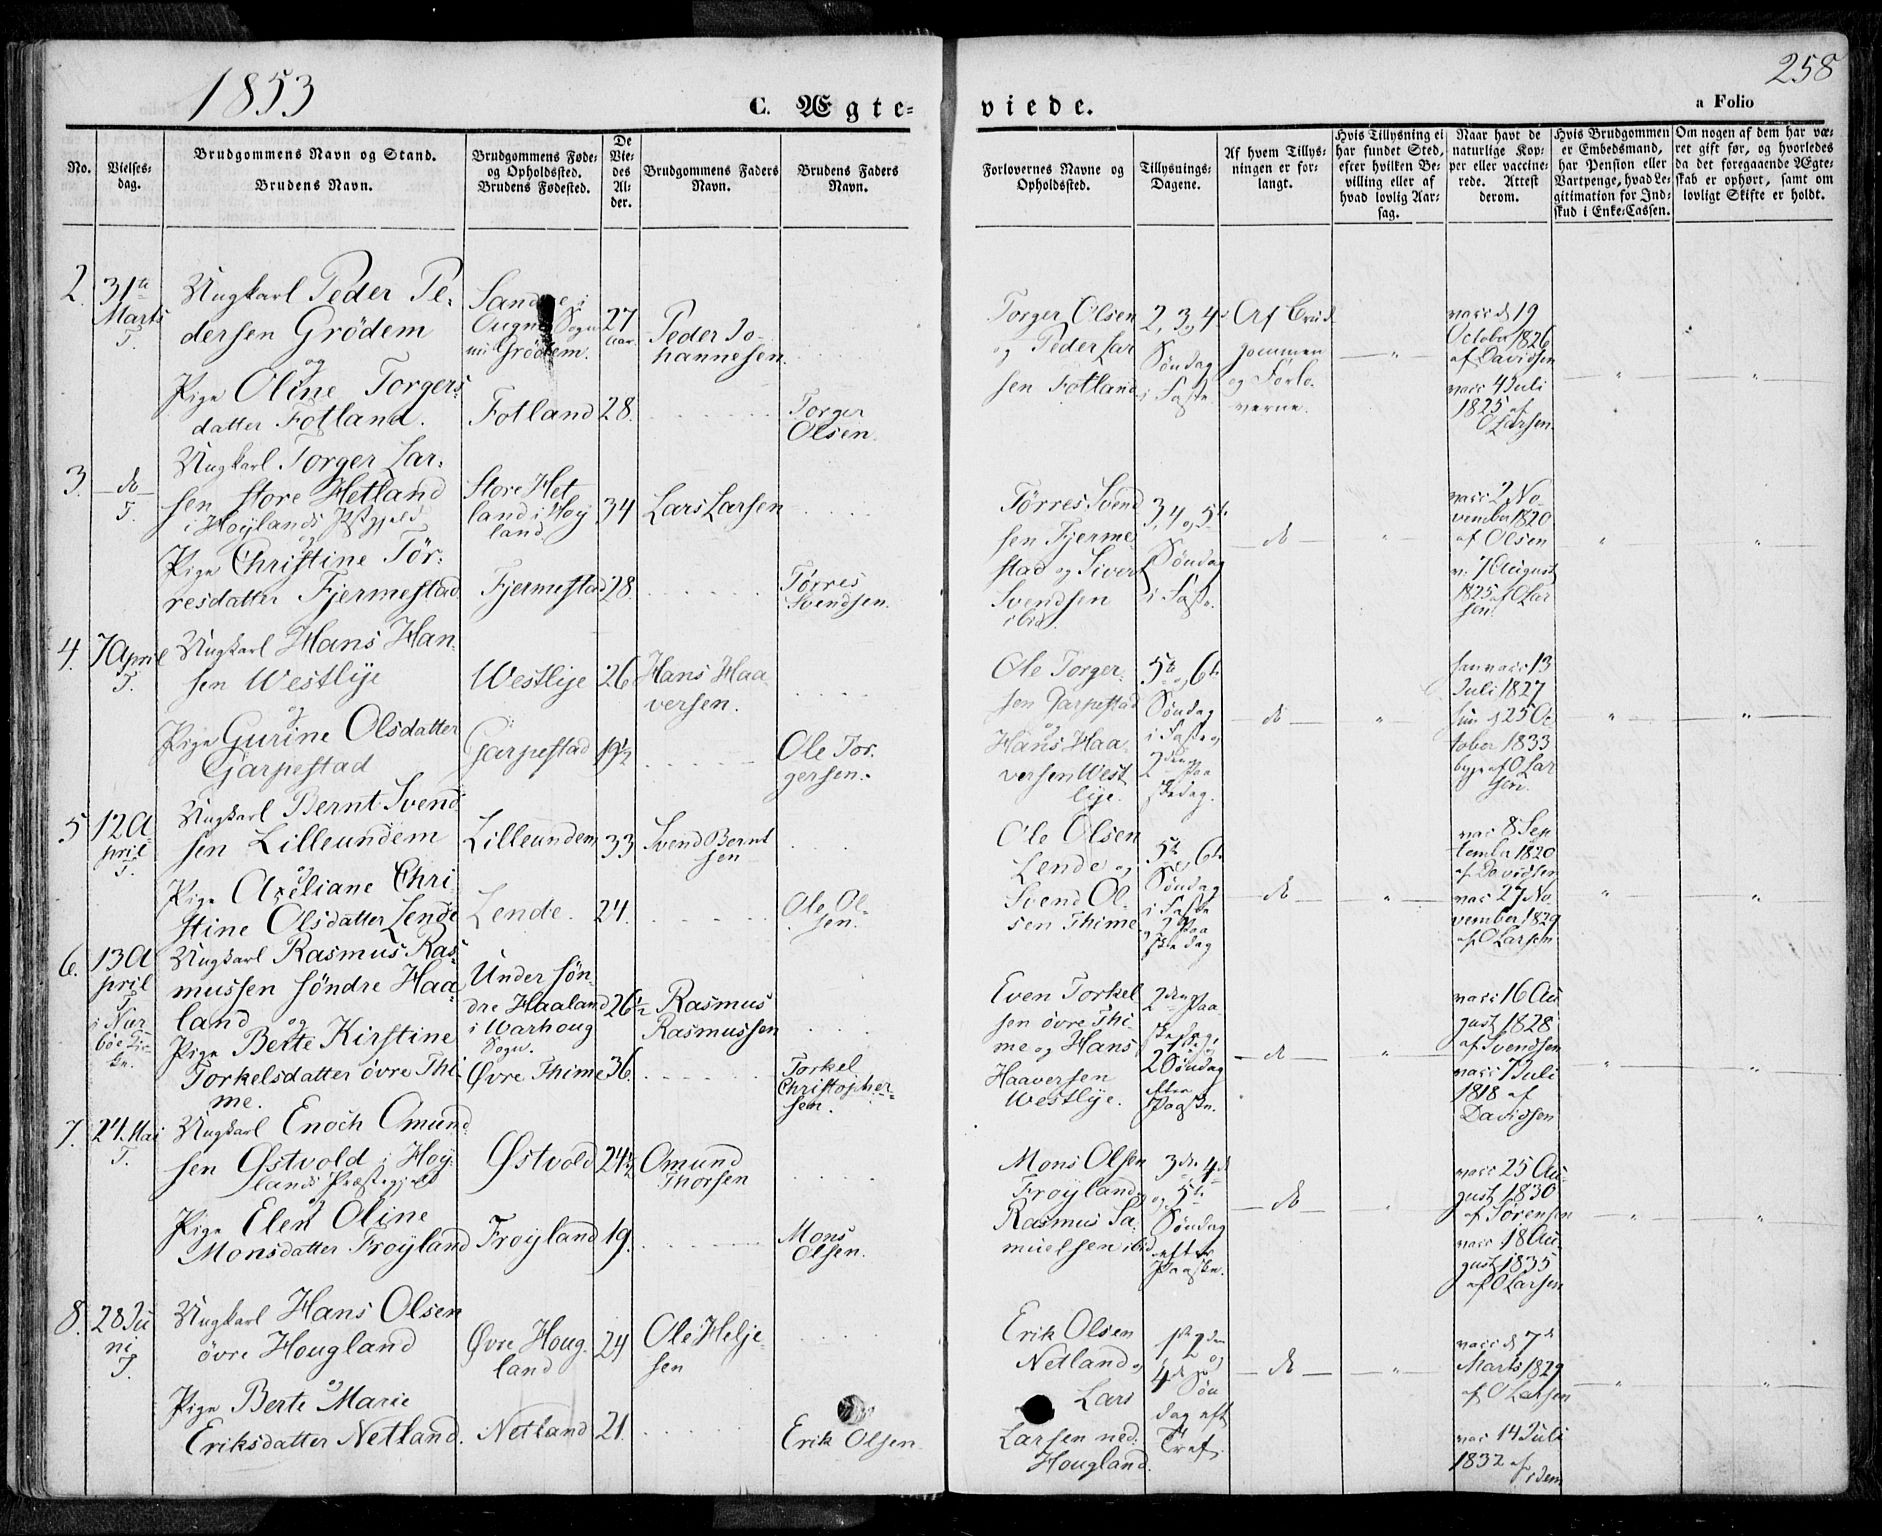 1853
258
C. Ægte=
viede.
a Folio
No.
Vielses-
dag.
Brudgommens Navn og Stand.
Brudens Navn.
Brudgommens Føde-
og Opholdssted.
Brudens Fødested.
De
Vie-
des
Al-
der.
Brudgommens Faders
Navn.
Brudens Faders
Navn.
Forlovernes Navne og
Opholdssted.
Tillysnings-
Dagene.
Af hvem Tillys-
ningen er for-
langt.
Hvis Tillysning ei
har fundet Sted,
efter hvilken Be-
villing eller af
hvad lovlig Aar-
sag.
Naar havt de
naturlige Kop-
per eller vaccine-
rede. Attest
derom.
Hvis Brudgommen
er Embedsmand,
har Pension eller
Vartpenge, hvad Le-
gitimation for Ind-
skud i Enke-Cassen.
Om nogen af dem har væ-
ret gift før, og hvorledes
da det foregaaende Ægte-
skab er ophørt, samt om
lovligt Skifte er holdt.
2.
31te
Marts
T.
Ungkarl Peder Pe-
dersen Grödem
og
Pige Oline Torgers-
datter Fotland.
Sogn
Grödem.
Fotland
27
Aar.
28.
Peder Jo-
hannesen
Torger
Olsen.
Torger Olsen
og Peder Lar
sen Fotland
2, 3, 4de
Søndag
i Faste.
Af Brud
gommen
og Forlo
verne.
vacc d 19
October 1826
af Davidsen
vacc 4 Juli
1825 af
O Larsen.
3.
do
T.
Ungkarl Torger Lar-
sen Store Hetland
i Höylands Pstgjeld
og
Pige Christine Tör-
resdatter Fjermestad
Store Het
land i Höy
land
Fjermestad
34
28
Lars Larsen
Tørres
Svendsen.
Tørres Svend
sen Fjerme-
stad og Sivert
Svendsen
ibid.
3, 4 og 5te
Søndag
i Faste.
do
vacc 2 No
vember 1820
af Olsen
v. 7 August
1825 af O Lar
sen.
4.
7 April
T.
Ungkarl Hans Han-
sen Westlije
og
Pige Gurine Olsdatter
Garpestad
Westlije
Garpestad
26
19½
Hans Haa
versen.
Ole Tor.
gersen.
Ole Torger-
sen Garpestad
og
Hans Haa-
versen West
lije.
5te og 6te
Søndag
i Faste og
2den Paa
skedag.
do
han vacc 13
Juli 1827
hun d 25 Oc
tober 1833
begge af O Lar
sen.
5
12 A
pril
T.
Ungkarl Bernt Svend
sen Lilleundem
og
Pige Axeliane Chri
stine Olsdatter Lende
Lilleundem
Lende.
33
24.
Svend Bernt
sen
Ole Ol-
sen.
Ole Olsen
Lende og
Svend Ol-
sen Thime
5te og 6te
Søndag
i Faste
og 2 Paa
skedag
do
vac 8 Sep
tember 1820
af Davidsen
vac 27 No
vember 1829
af O Larsen
6.
13 A
pril
T.
i Nær-
böe Kir-
ke.
Ungkarl Rasmus Ras-
mussen söndre Haa-
land og
Pige Berte Kirstine
Torkelsdatter övre Thi-
me.
Under Sön
dre Haaland
i Warhoug
Sogn.
Øvre Thime
26½
36.
Rasmus
Rasmussen
Torkel
Christopher-
sen.
Even Torkel
sen övre Thi-
me og Hans
Haaversen
Westlije.
2den Paa-
skedag,
2 Søndag
efter
Paaske.
do
vacc 16 Au
gust 1828
af Svendsen
vacc 7 Juli
1818 af
Davidsen
7.
24 Mai
T.
Ungkarl Enoch Omund
sen Østvold i Höy-
lands Præstegjeld
og
Pige Elen Oline
Monsdatter Fröyland
Østvold
Fröyland
24½
19.
Omund
Thorsen
Mons
Olsen.
Mons Olsen
Fröyland og
Rasmus Sa-
muelsen ibid
3de 4de
og 5te
Søndag
efter
Paaske.
do
vacc 25 Au-
gust 1830
af Sörensen
vacc 18 Au-
gust 1835
af O Larsen
8.
28 Ju
ni
T.
Ungkarl Hans Olsen
övre Hougland
og
Pige Berte Marie
Eriksdatter Netland.
Øvre Houg-
land
Netland
24
21.
Ole Helje-
sen
Erik Olsen.
Erik Olsen
Netland og
Lars
Larsen ned:
Hougland.
1ste 2den
og
4de Søn
dag eft
Tref.
do
vacc d 7de
Marts 1829
af O Larsen
vac 14 Juli
1832 af
idem